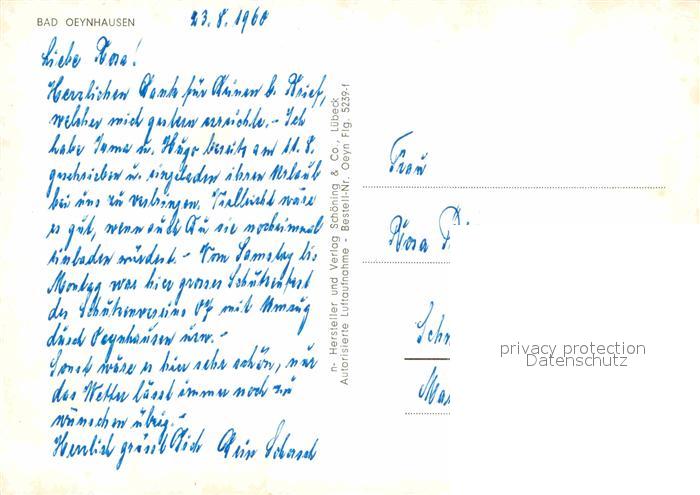 BAD OEYNHAUSEN
23.8.1960
Liebe Rosa!
Herzlichen Dank für Deinen l. Brief,
welcher mich gestern erreichte. - Ich
habe Irma u. Hugo bereits am 11.8.
geschrieben u. eingeladen ihren Urlaub
bei uns zu verbringen. Vielleicht wäre
es gut, wenn auch Du sie nocheinmal
einladen würdest. - Vom Samstag bis
Montag war hier grosses Schützenfest
des Schützenvereins Oy mit Umzug
durch Oeynhausen usw. -
Sonst wäre es hier sehr schön, nur
das Wetter lässt immer noch zu
wünschen übrig. -
Herzlich grüsst Dich Dein Schorsch
n- Hersteller und Verlag Schöning & Co., Lübeck
Autorisierte Luftaufnahme - Bestell-Nr. Oeyn Flg. 5239-f
Frau
Rosa
Schn
Mas
privacy protection
Datenschutz